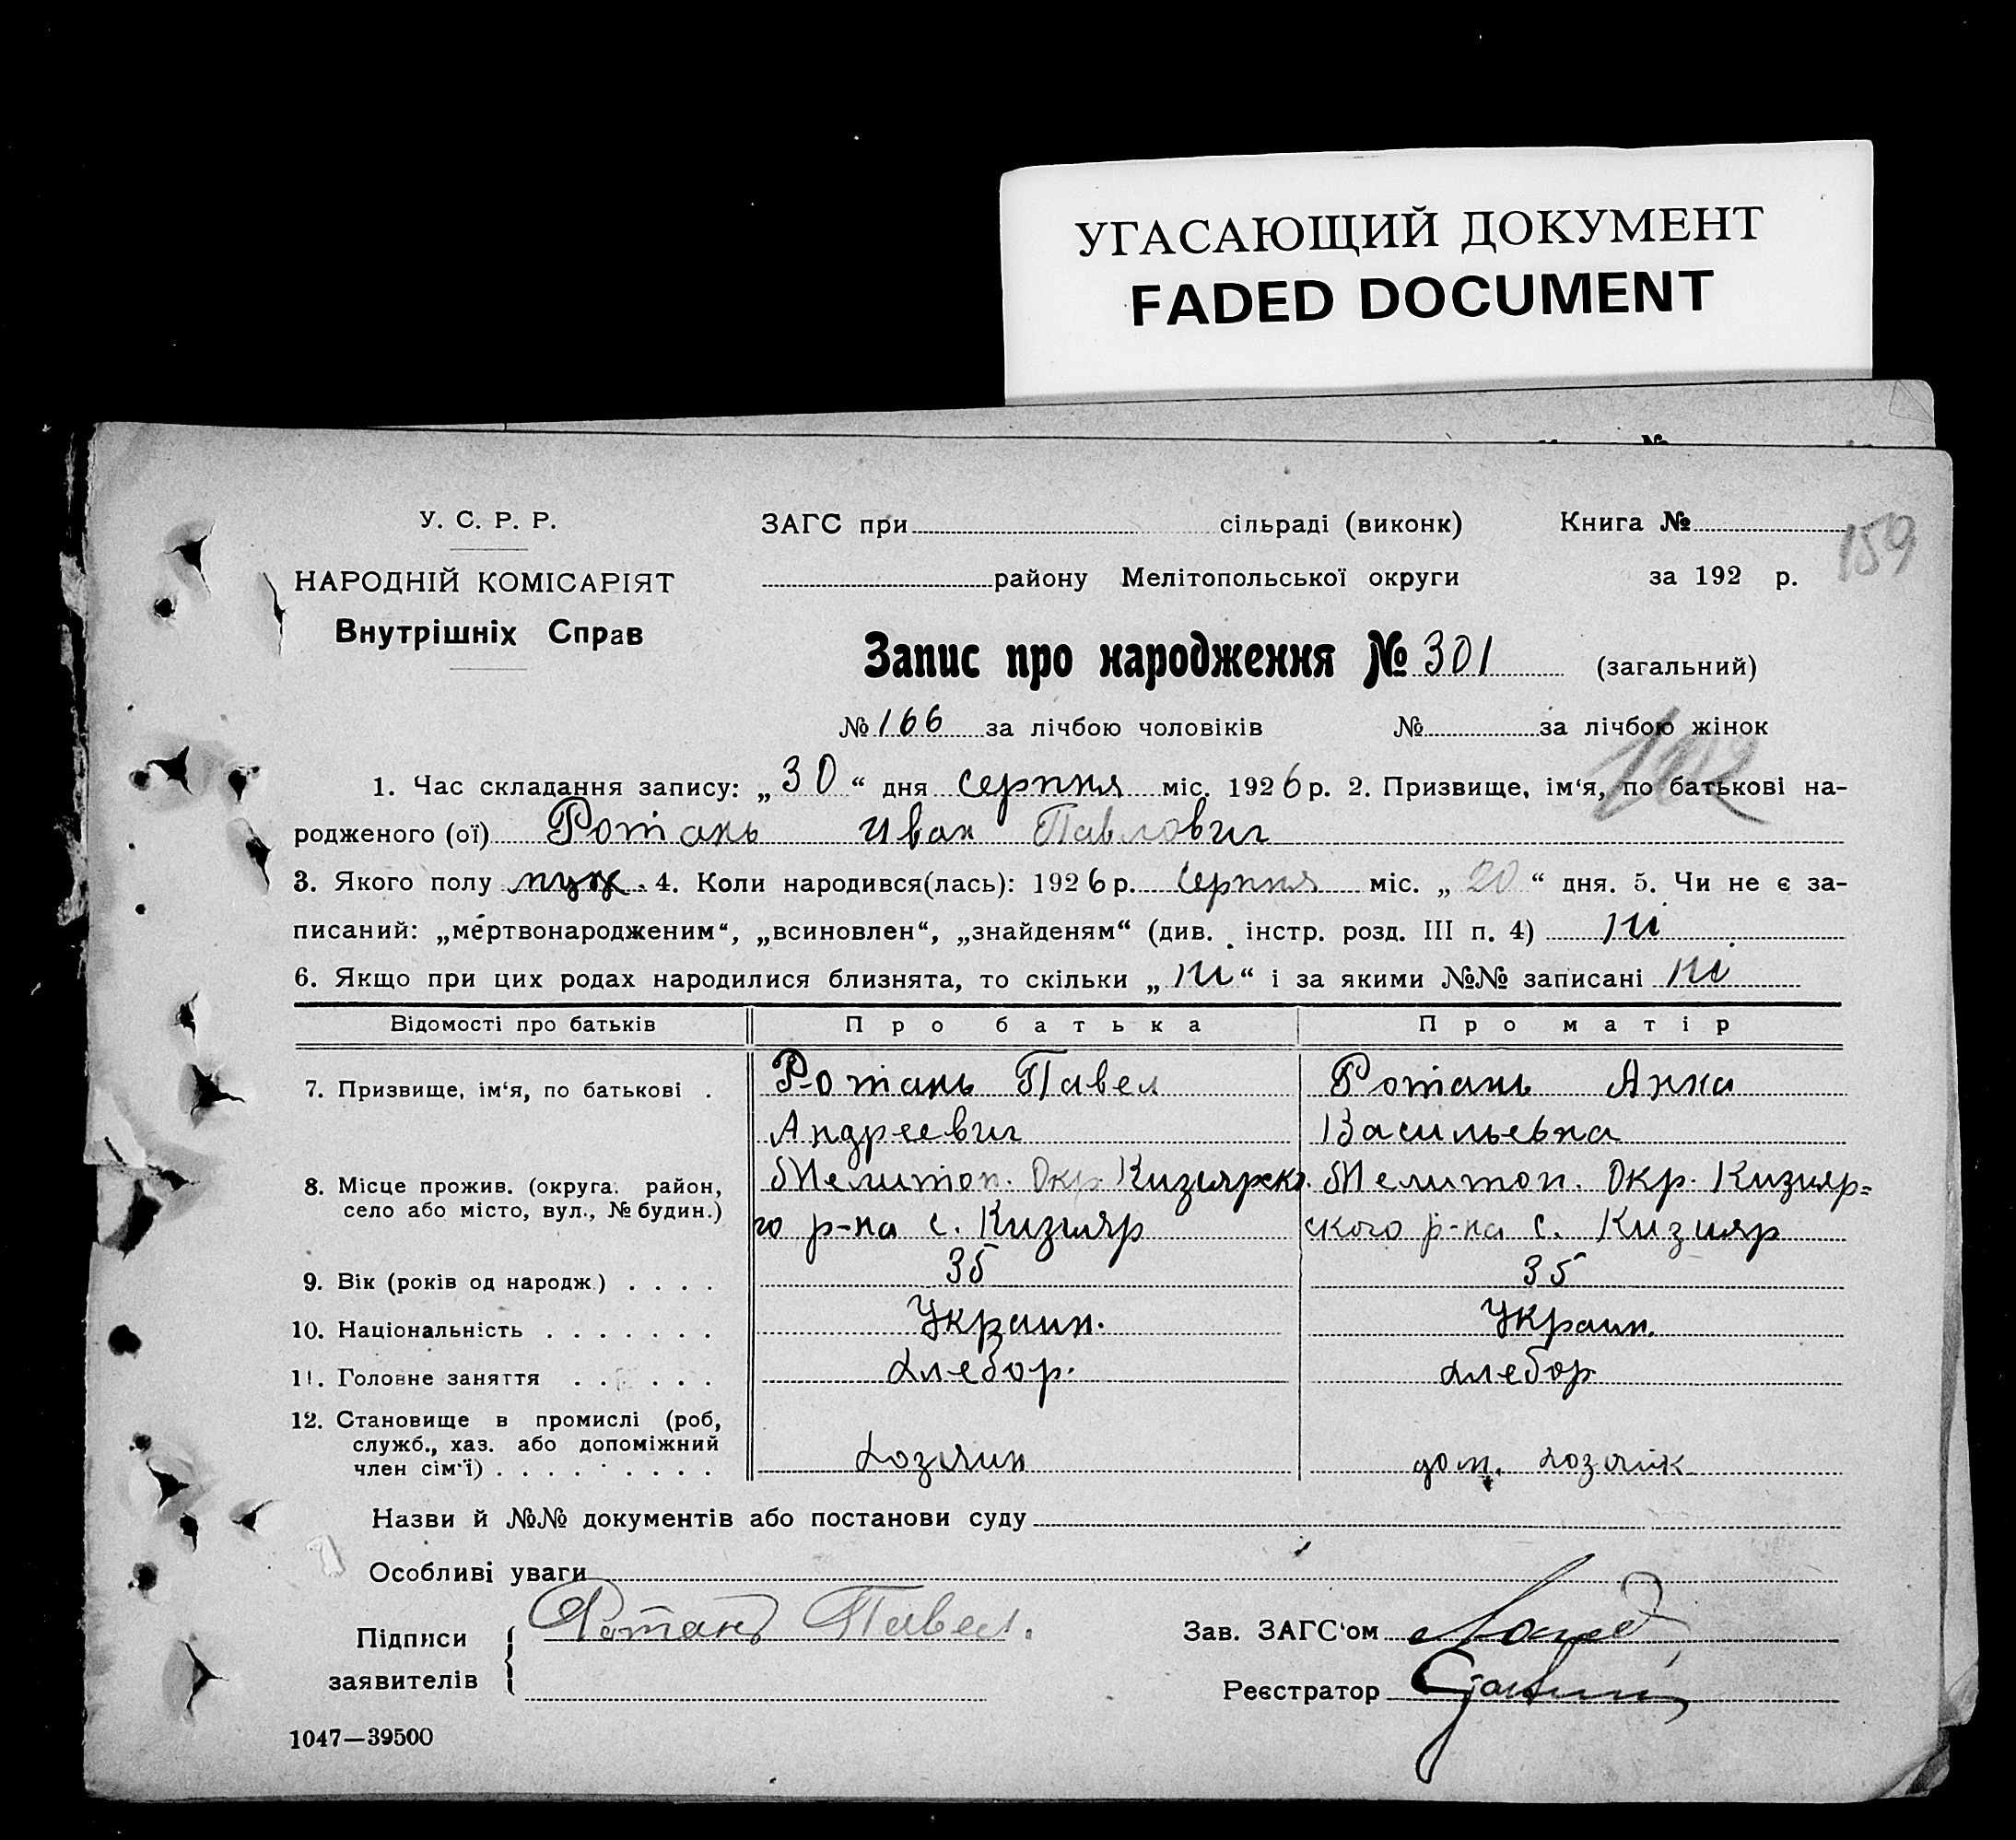 УГАСАЮЩИЙ ДОКУМЕНТ
FADED DOCUMENT
У. С. Р. Р.
НАРОДНІЙ КОМІСАРІЯТ
Внутрішніх Справ
ЗАГС при сільраді (виконк) Книга №
159
району Мелітопольської округи за 192 р.
Запис про народження № 301 (загальний)
№ 166 за лічбою чоловіків № за лічбою жінок
102
1. Час складання запису: „30“ дня серпня міс. 1926 р. 2. Призвище, ім‘я, по батькові на-
родженого (ої) Ротань Иван Павлович
3. Якого полу муж. 4. Коли народився(лась): 1926 р. серпня міс. „20“ дня. 5. Чи не є за-
писаний: „мертвонародженим“, „всиновлен“, „знайденям“ (див. інстр. розд. III п. 4) ні
6. Якщо при цих родах народилися близнята, то скільки „ні“ і за якими №№ записані ні
Відомості про батьків Про батька Про матір
7. Призвище, ім‘я, по батькові . Ротань Павел Ротань Анна
Андреевич Васильевна
8. Місце прожив. (округа. район, Мелитоп. Окр. Кизиярско Мелитоп. Окр. Кизияр=
село або місто, вул., № будин.) го р-на с. Кизияр ского р-на с. Кизияр
9. Вік (років од народж.) . . . . 35 35
10. Національність . . . . . . . Украин. Украин.
11. Головне заняття . . . . . . Хлебор. хлебор
12. Становище в промислі (роб,
служб., хаз. або допоміжний
член сім‘ї) . . . . . . . . . Хозяин дом. хозяик
Назви й №№ документів або постанови суду
Особливі уваги
Підписи заявителів Ротань Павел.
Зав. ЗАГС‘ом
Реєстратор
1047—39500